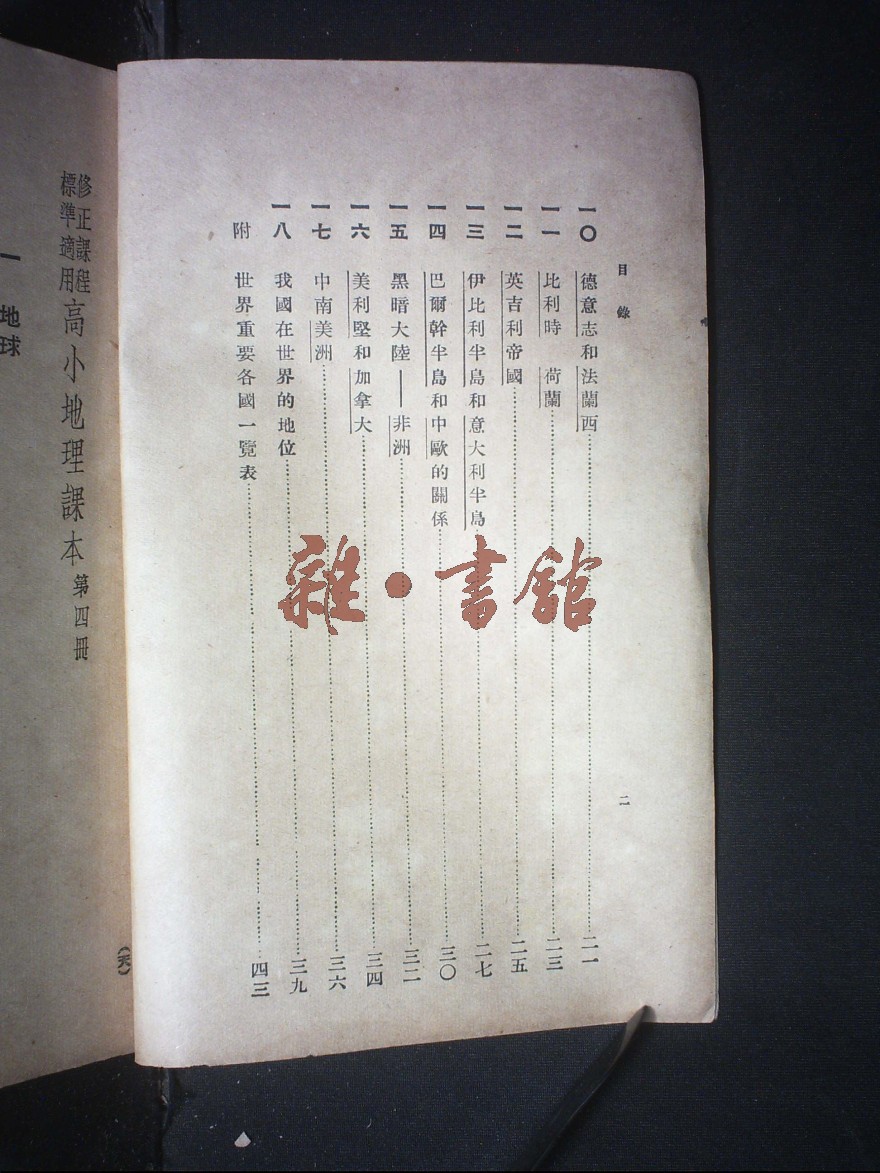 目錄
二
一〇 德意志和法蘭西 二一
一一 比利時 荷蘭 二三
一二 英吉利帝國 二五
一三 伊比利半島和意大利半島 二七
一四 巴爾幹半島和中歐的關係 三〇
一五 黑暗大陸——非洲 三二
一六 美利堅和加拿大 三四
一七 中南美洲 三六
一八 我國在世界的地位 三九
附 世界重要各國一覽表 四三
雜·書館
修正課程標準適用 高小地理課本 第四冊
一 地球
(天)